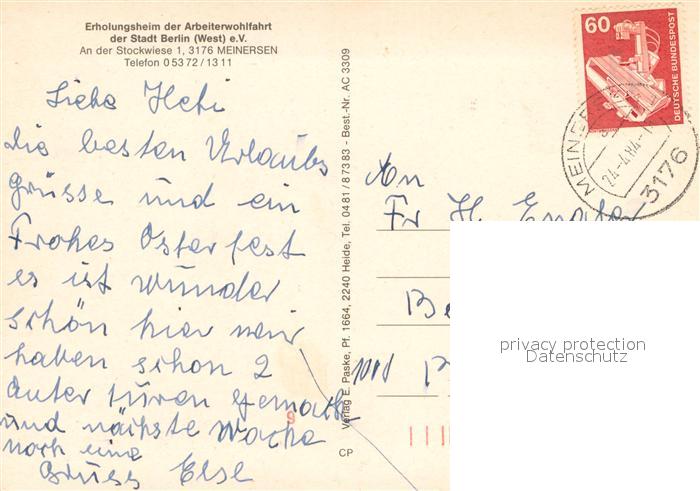 Erholungsheim der Arbeiterwohlfahrt
der Stadt Berlin (West) e.V.
An der Stockwiese 1, 3176 MEINERSEN
Telefon 0 53 72 / 13 11
Liebe Heti
die besten Urlaubs
grüsse und ein
Frohes Osterfest
es ist wunder
schön hier wir
haben schon 2
Auter turen gemacht
und nächste Woche
noch eine
Gruss Else
Verlag E. Paske, Pf. 1664, 2240 Heide, Tel. 0481/87383 - Best.-Nr. AC 3309
CP
9
60
DEUTSCHE BUNDESPOST
24.-4.84-1
3176
An
Fr H.
privacy protection
Datenschutz